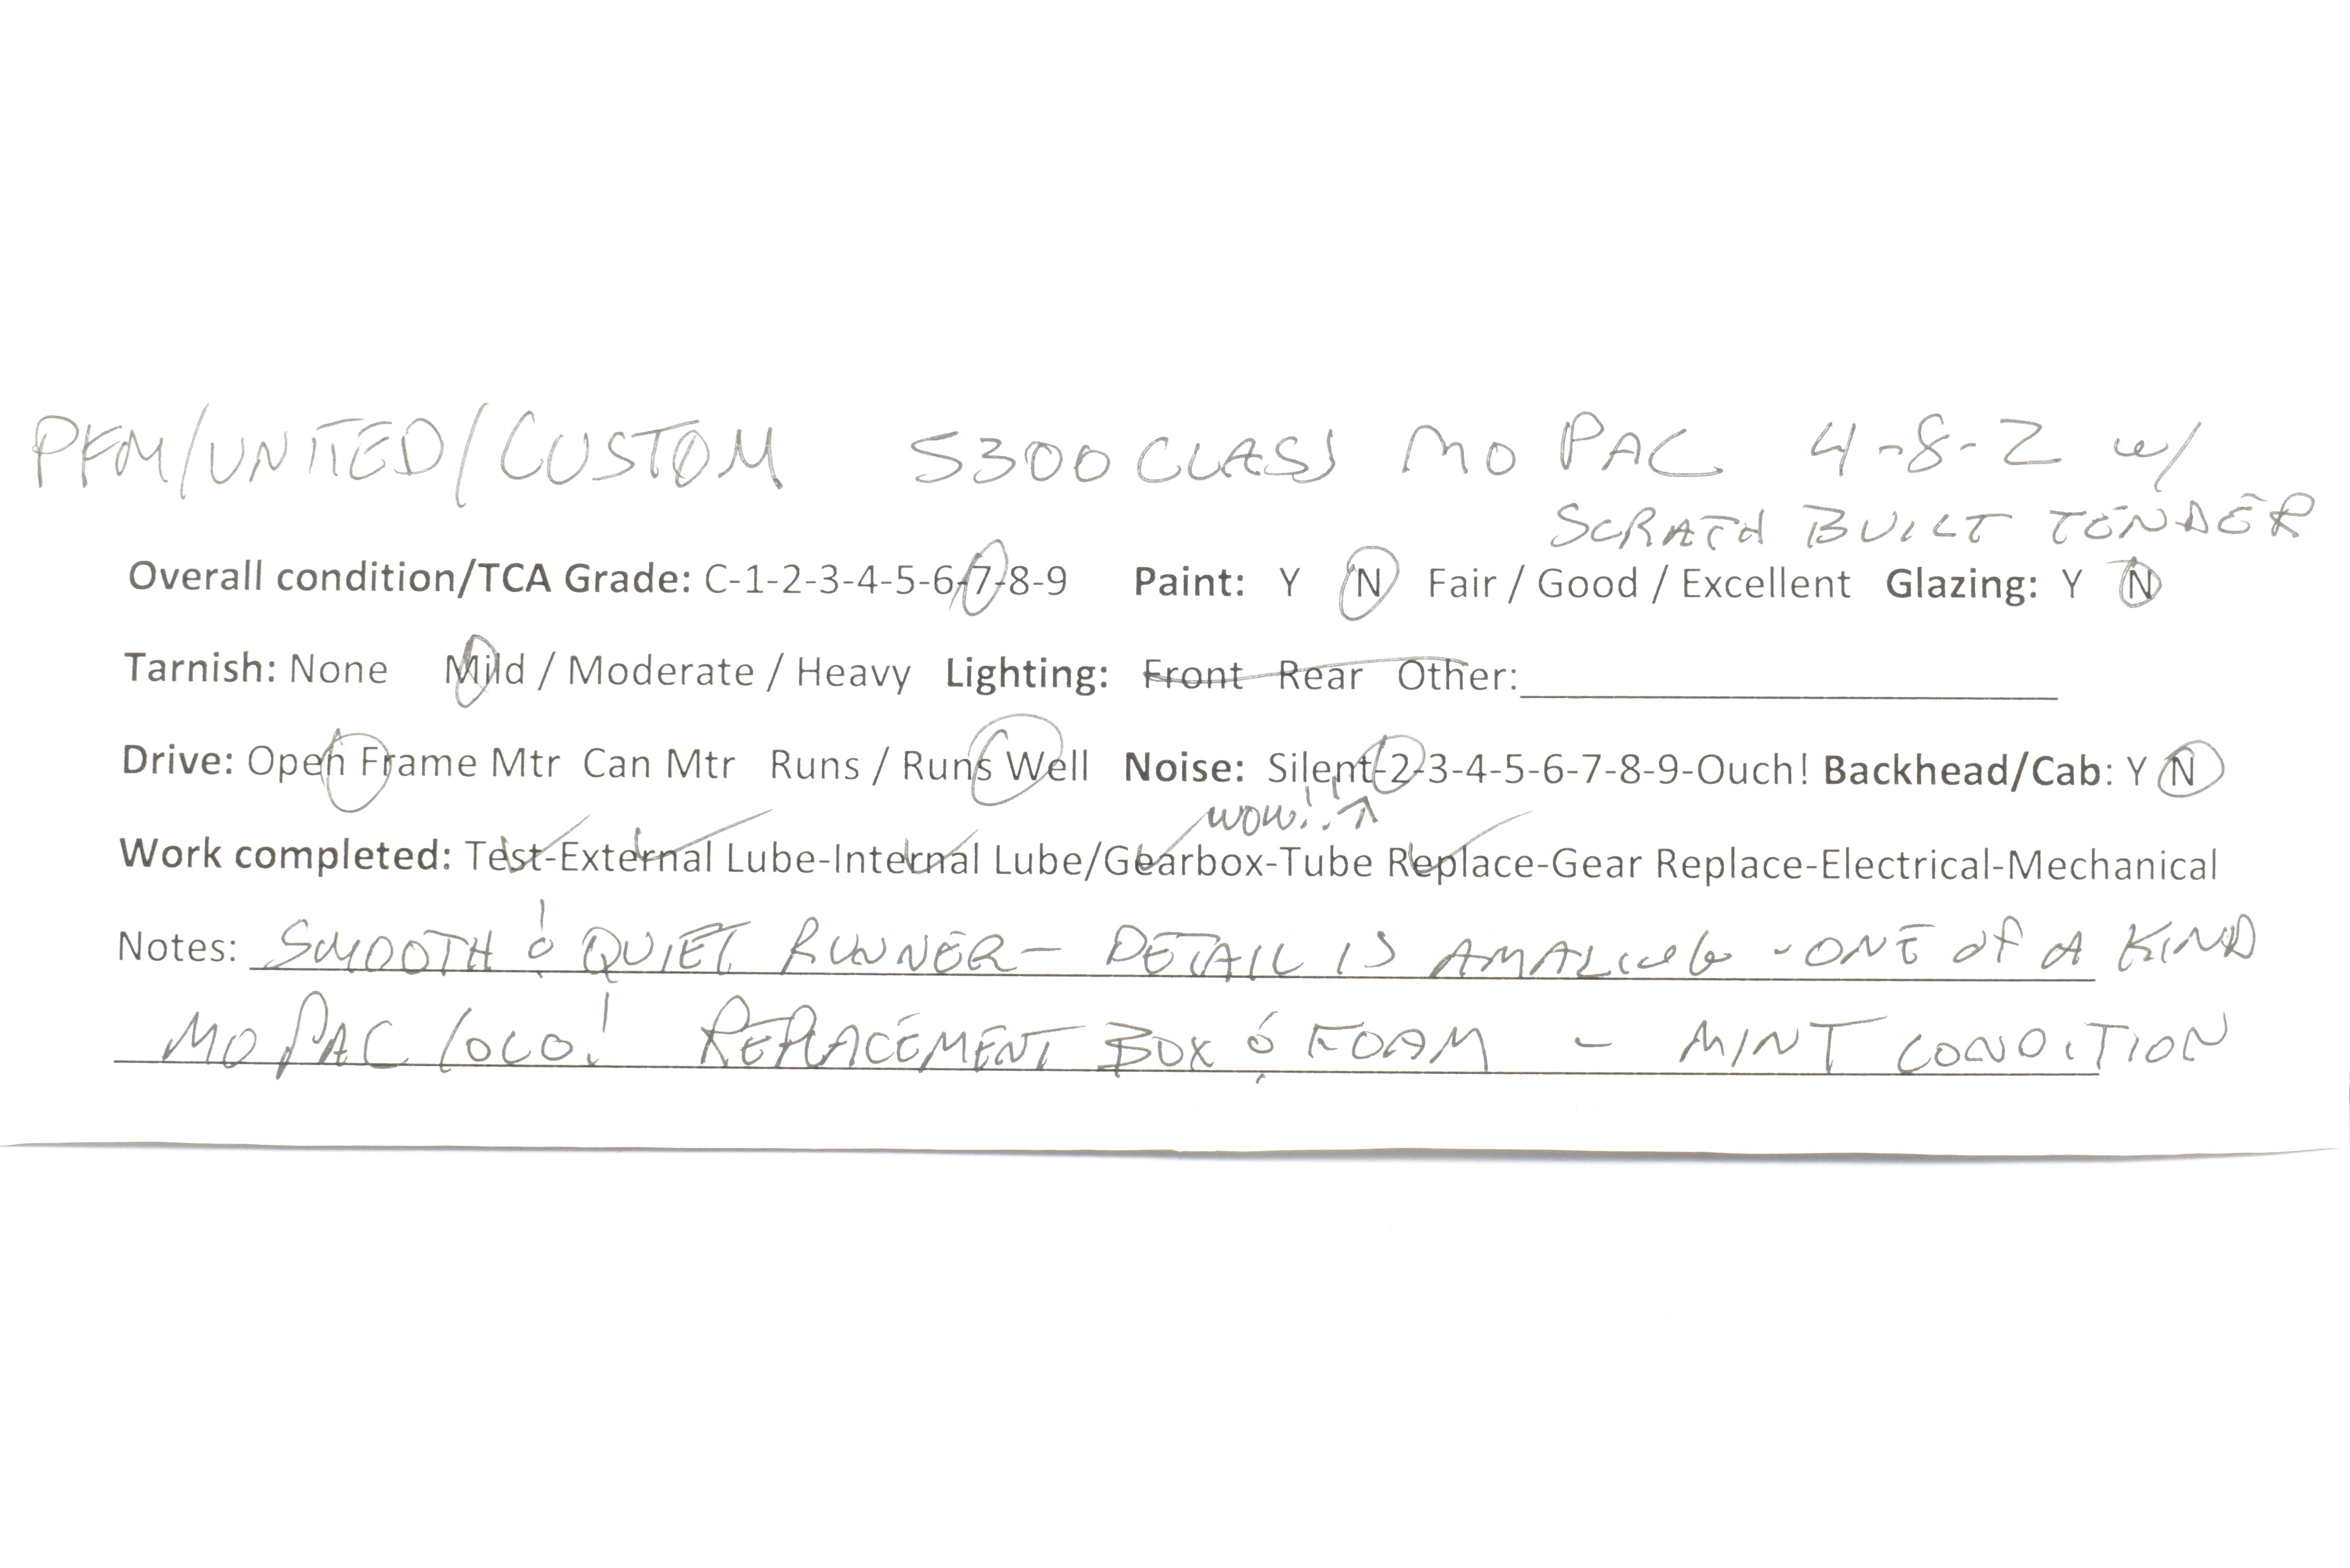 PFM/UNITED/CUSTOM S300 CLASS MO PAC 4-8-2 w/
SCRATCH BUILT TENDER
Overall condition/TCA Grade: C-1-2-3-4-5-6-7-8-9 Paint: Y N Fair / Good / Excellent Glazing: Y N
Tarnish: None Mild / Moderate / Heavy Lighting: Front Rear Other:
Drive: Open Frame Mtr Can Mtr Runs / Runs Well Noise: Silent-2-3-4-5-6-7-8-9-Ouch! Backhead/Cab: Y N
WOW!!
Work completed: Test-External Lube-Internal Lube/Gearbox-Tube Replace-Gear Replace-Electrical-Mechanical
Notes: SMOOTH & QUIET RUNNER - DETAIL IS AMAZING - ONE of A KIND
MO PAC LOCO! REPLACEMENT BOX & FOAM - MINT CONDITION